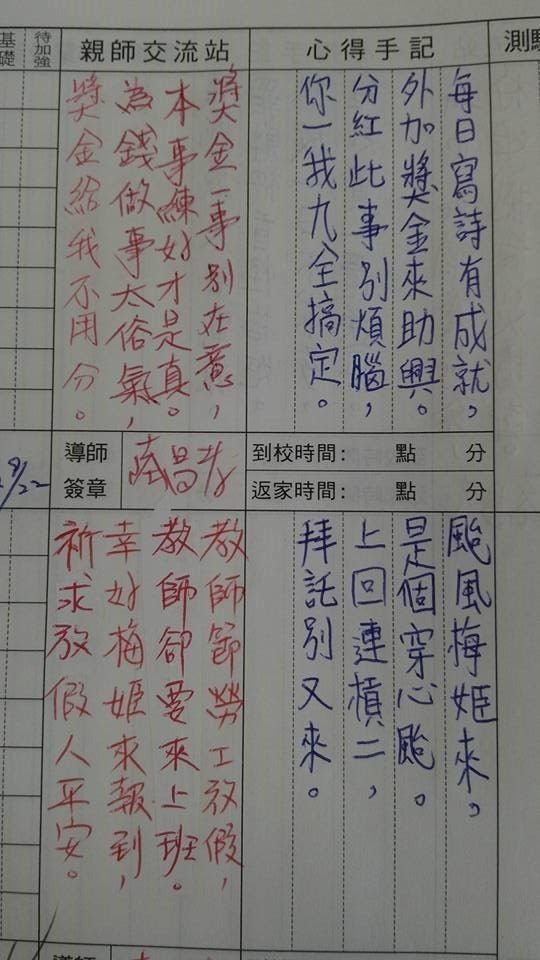 測驗
心得手記
親師交流站
待加強
基礎
每日寫詩有成就，
外加獎金來助興。
分紅此事別煩腦，
你一我九全搞定。
獎金一事別在意，
本事練好才是真。
為錢做事太俗氣，
獎金給我不用分。
到校時間： 點 分
返家時間： 點 分
導師
簽章
9/22
颱風梅姬來。
是個穿心颱。
上回連槓二，
拜託別又來。
教師節勞工放假，
教師卻要來上班。
幸好梅姬來報到，
祈求放假人平安。
導師